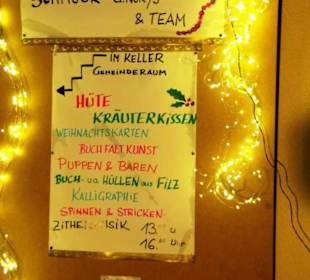 & TEAM
IM KELLER
GEMEINDERAUM
HÜTE
KRÄUTERKISSEN
WEIHNACHTSKARTEN
BUCHFALTKUNST
PUPPEN & BÄREN
BUCH- u.a. HÜLLEN aus FILZ
KALLIGRAPHIE
SPINNEN & STRICKEN
13.00 u
16.00 Uhr